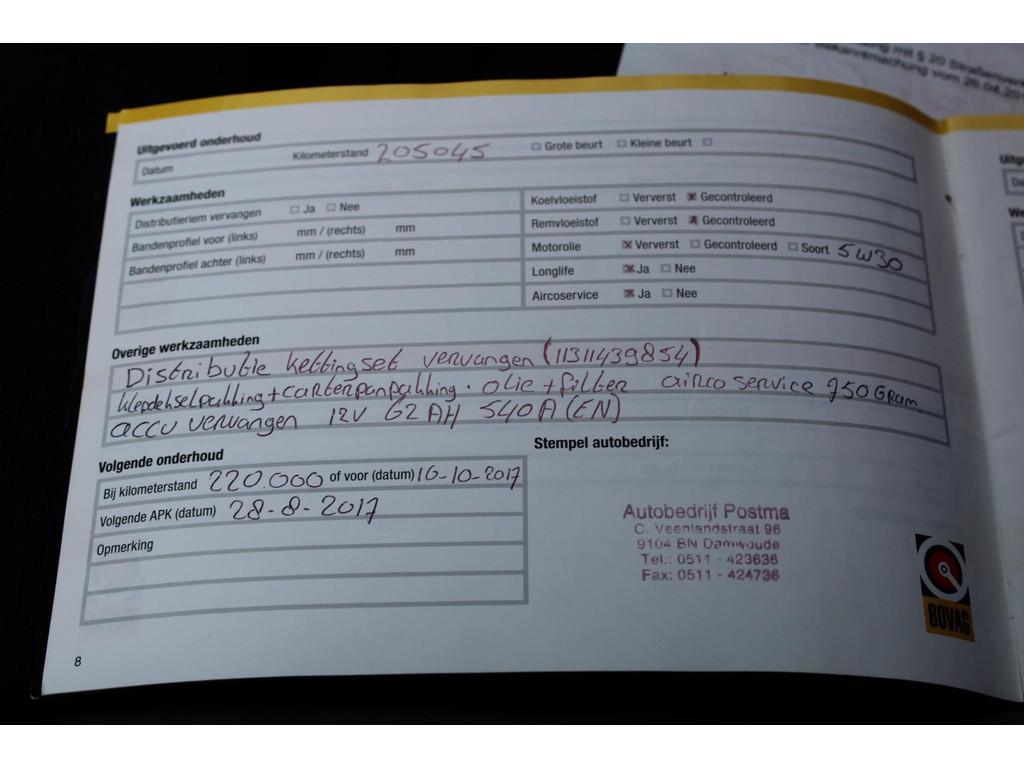 mit § 20
vom 26.04.20
Uitgevoerd onderhoud
Datum Kilometerstand 205045 Grote beurt Kleine beurt
Werkzaamheden
Distributieriem vervangen Ja Nee
Bandenprofiel voor (links) mm / (rechts) mm
Bandenprofiel achter (links) mm / (rechts) mm
Koelvloeistof Ververst Gecontroleerd
Remvloeistof Ververst Gecontroleerd
Motorolie Ververst Gecontroleerd Soort 5W30
Longlife Ja Nee
Aircoservice Ja Nee
Overige werkzaamheden
Distributie kettingset vervangen (11311439854)
klepdekselpakking + carterpanpakking. olie + filter airco service 750 Gram
accu vervangen 12V 62AH 540A (EN)
Volgende onderhoud
Bij kilometerstand 220.000 of voor (datum) 16-10-2017
Volgende APK (datum) 28-8-2017
Opmerking
Stempel autobedrijf:
Autobedrijf Postma
C. Veenlandstraat 96
9104 BN Damwoude
Tel.: 0511 - 423636
Fax: 0511 - 424736
BOVAG
8